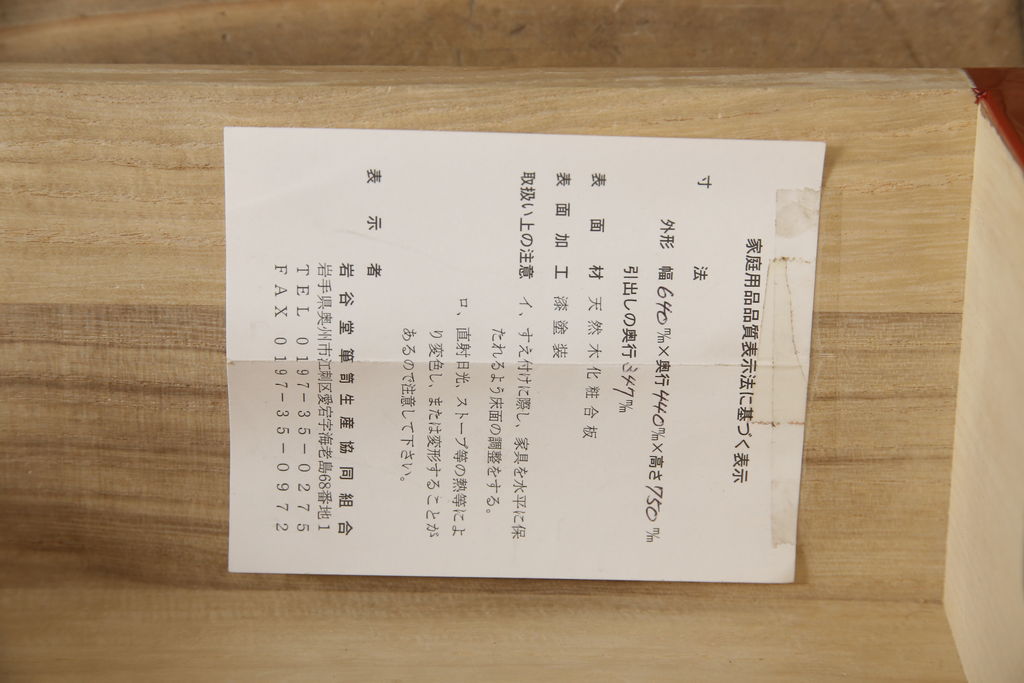 家庭用品品質表示法に基づく表示
寸法
外形 幅640㎜×奥行440㎜×高さ750㎜
引出しの奥行347㎜
表面材 天然木化粧合板
表面加工 漆塗装
取扱い上の注意 イ、すえ付けに際し、家具を水平に保
たれるよう床面の調整をする。
ロ、直射日光、ストーブ等の熱等によ
り変色し、または変形することが
あるので注意して下さい。
表示者
岩谷堂箪笥生産協同組合
岩手県奥州市江刺区愛宕字海老島68番地1
TEL 0197-35-0275
FAX 0197-35-0972